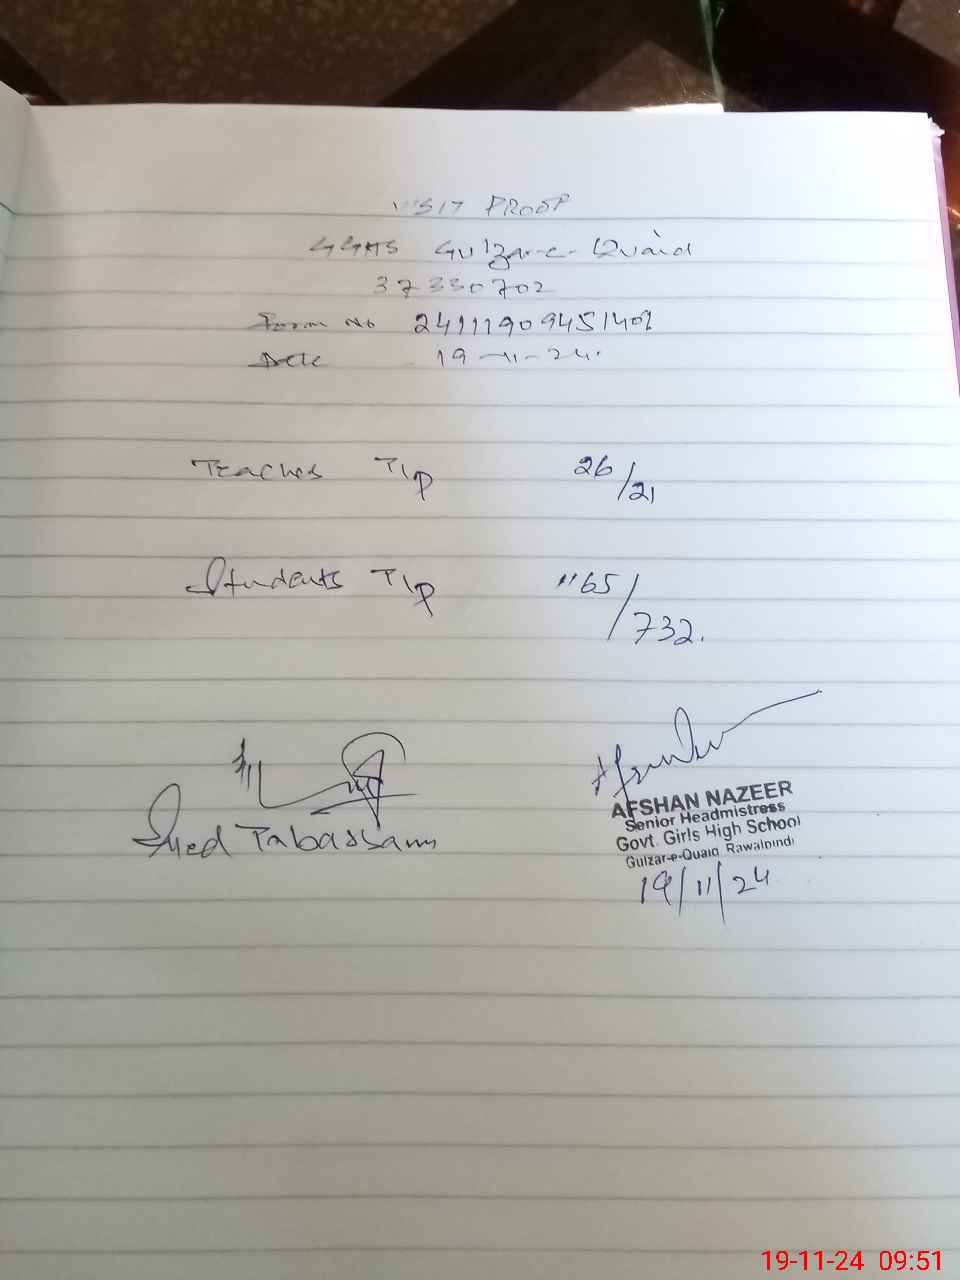 VISIT PROOF
GGHS Gulzar-e-Quaid
37330702
Form No 24111909451401
Date 19-11-24.
Teaches T/P 26/21
Students T/P 1165/732.
Syed Tabassam
AFSHAN NAZEER
Senior Headmistress
Govt. Girls High School
Gulzar-e-Quaid Rawalpindi
19/11/24
19-11-24 09:51